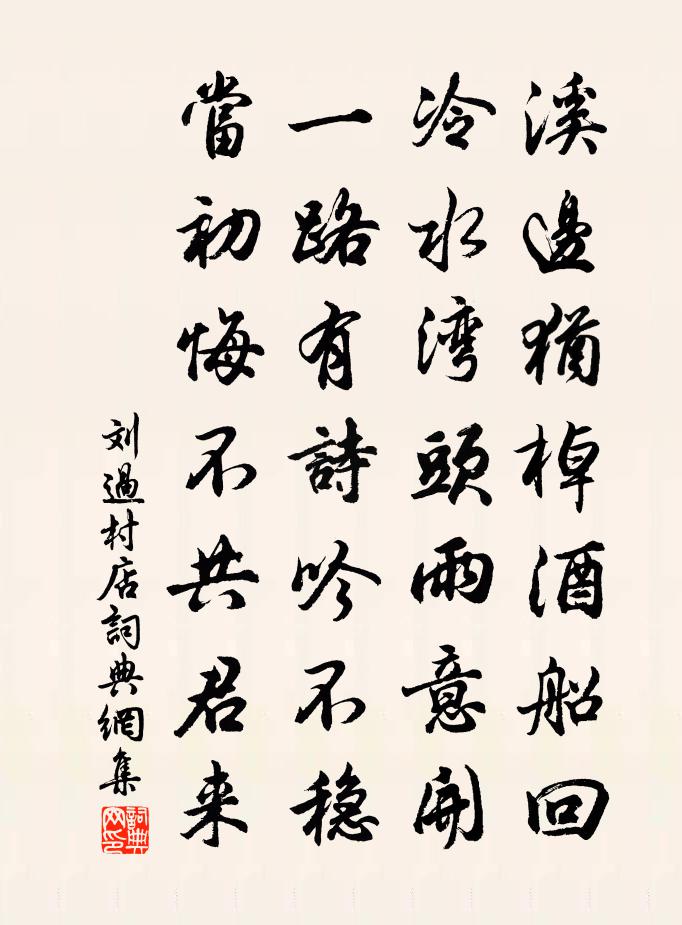 溪邊猶棹酒船回
冷水湾頭雨意開
一路有詩吟不穩
當初悔不共君来
刘過村店詞典網集
詞典網印